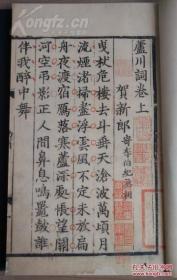 蘆川詞卷上
賀新郎 寄李伯紀丞相
曳杖危樓去斗垂天滄波萬頃月
流煙渚掃盡浮雲風不定未放扁
舟夜渡宿雁落寒蘆深處悵望關
河空弔影正人間鼻息鳴鼉鼓誰
伴我醉中舞